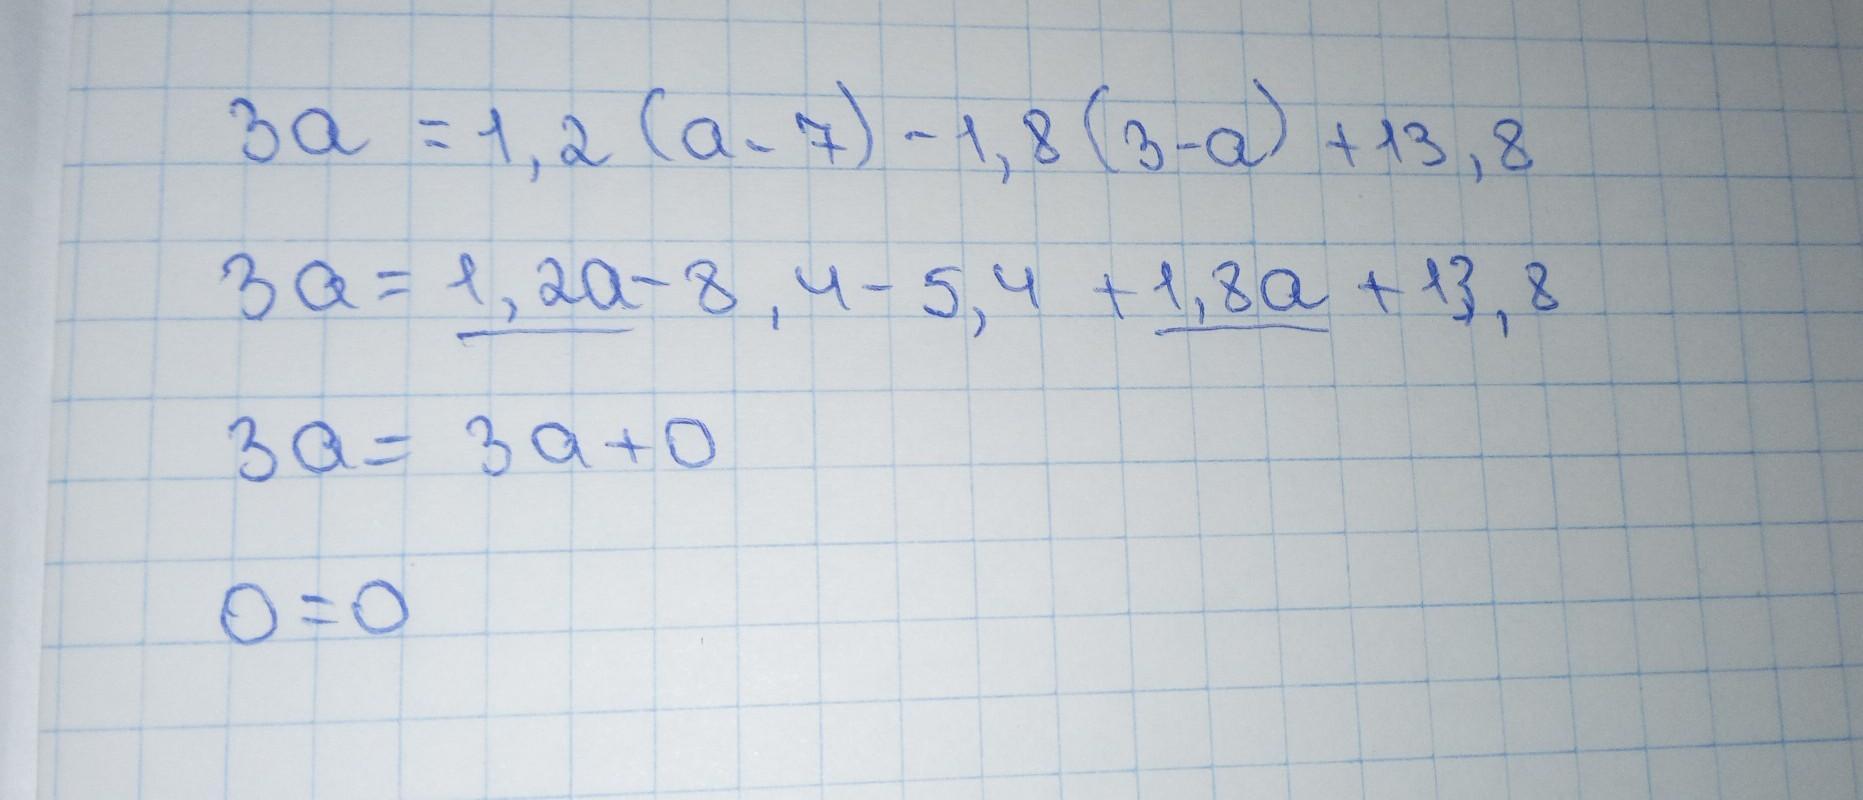 3a = 1,2 (a - 7) - 1,8 (3 - a) + 13,8
3a = 1,2a - 8,4 - 5,4 + 1,8a + 13,8
3a = 3a + 0
0 = 0